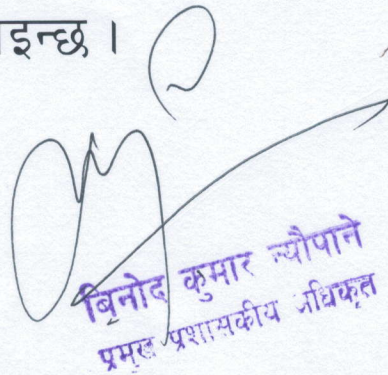 इन्छ ।
बिनोद कुमार न्यौपाने
प्रमुख प्रशासकीय अधिकृत